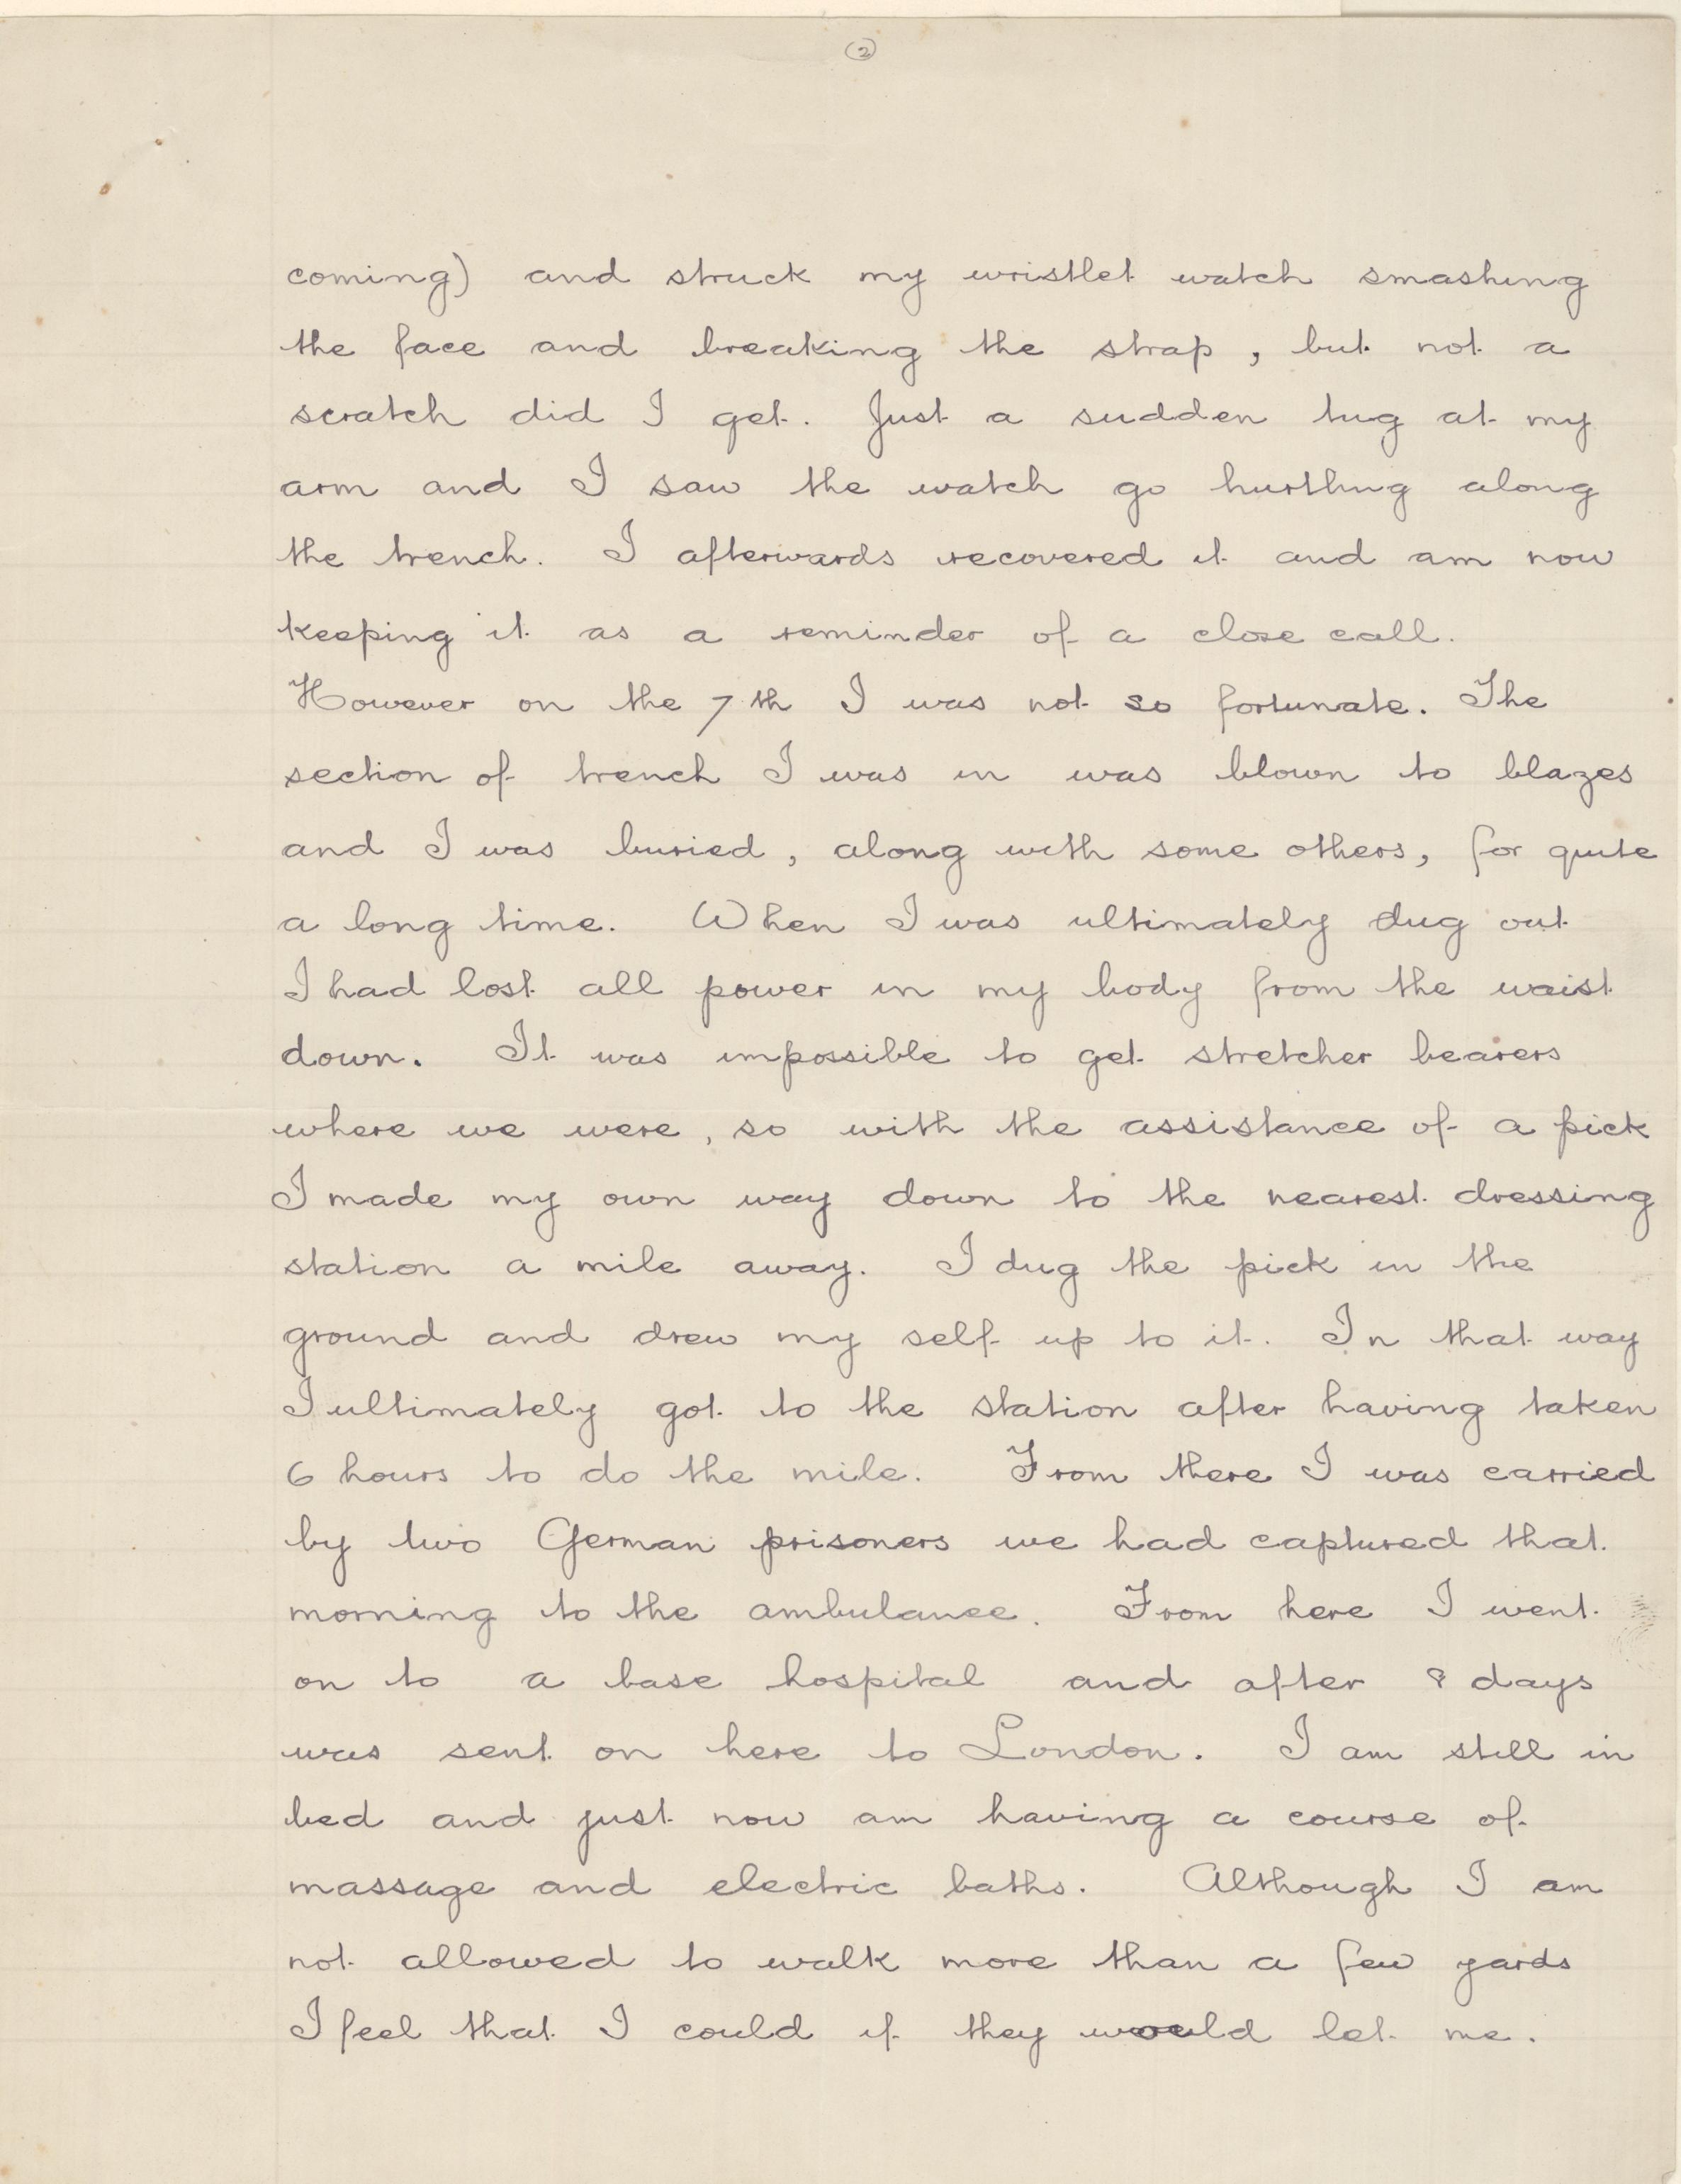 2
coming) and struck my wristlet watch smashing
the face and breaking the strap, but not a
scratch did I get. Just a sudden tug at my
arm and I saw the watch go hurtling along
the trench. I afterwards recovered it and am now
keeping it as a reminder of a close call.
However on the 7th I was not so fortunate. The
section of trench I was in was blown to blazes
and I was buried, along with some others, for quite
a long time. When I was ultimately dug out
I had lost all power in my body from the waist
down. It was impossible to get stretcher bearers
where we were, so with the assistance of a pick
I made my own way down to the nearest dressing
station a mile away. I dug the pick in the
ground and drew my self up to it. In that way
I ultimately got to the station after having taken
6 hours to do the mile. From there I was carried
by two German prisoners we had captured that
morning to the ambulance. From here I went
on to a base hospital and after 8 days
was sent on here to London. I am still in
bed and just now am having a course of
massage and electric baths. Although I am
not allowed to walk more than a few yards
I feel that I could if they would let me.